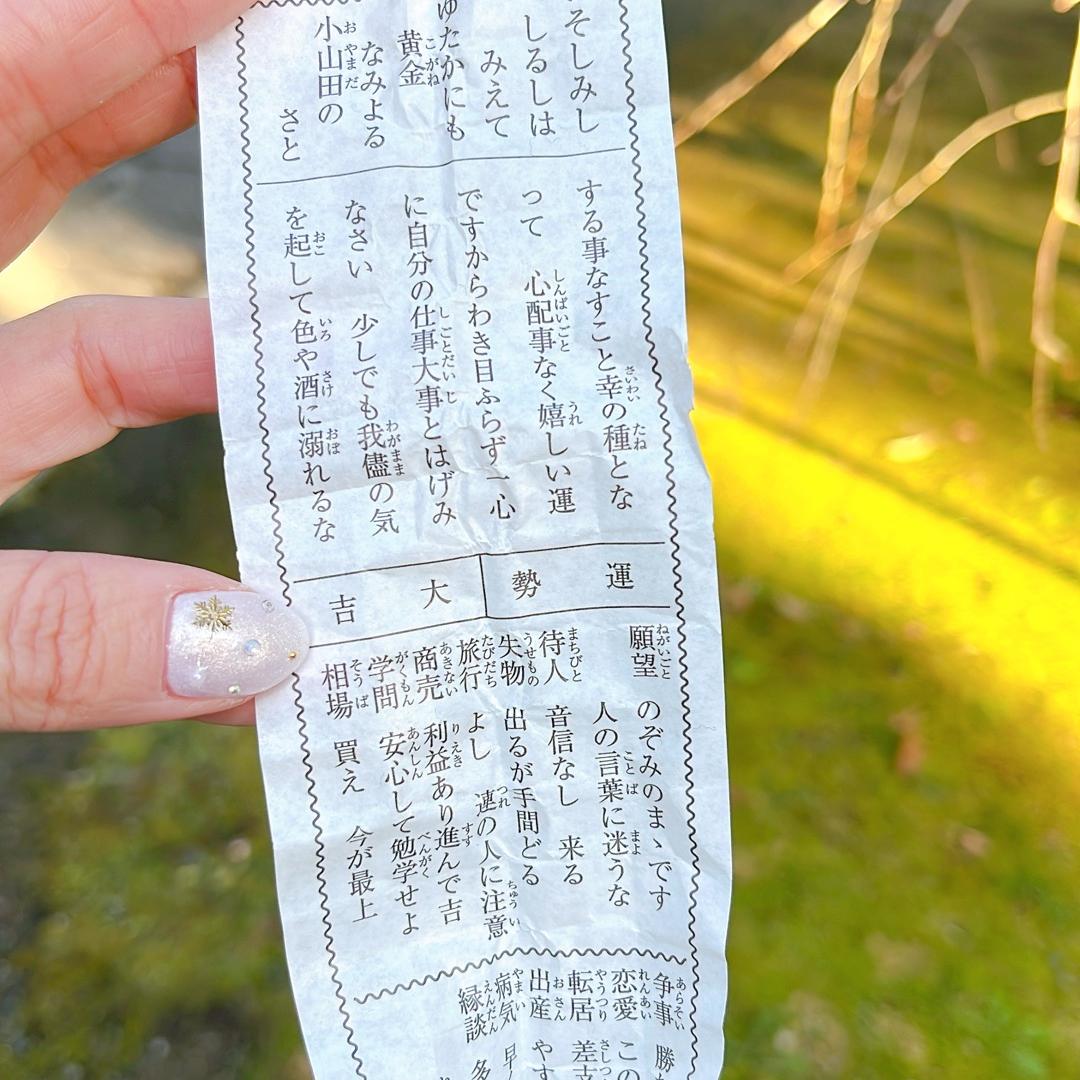 そしみし
しるしは
みえて
ゆたかにも
黄金
なみよる
小山田の
さと
する事なすこと幸の種とな
って 心配事なく嬉しい運
ですからわき目ふらず一心
に自分の仕事大事とはげみ
なさい 少しでも我儘の気
を起して色や酒に溺れるな
運勢 大吉
願望 のぞみのまゝです
人の言葉に迷うな
待人 音信なし 来る
失物 出るが手間どる
旅行 よし 連の人に注意
商売 利益あり進んで吉
学問 安心して勉学せよ
相場 買え 今が最上
争事 勝
恋愛 この
転居 差支
出産 やす
病気 早
縁談 多